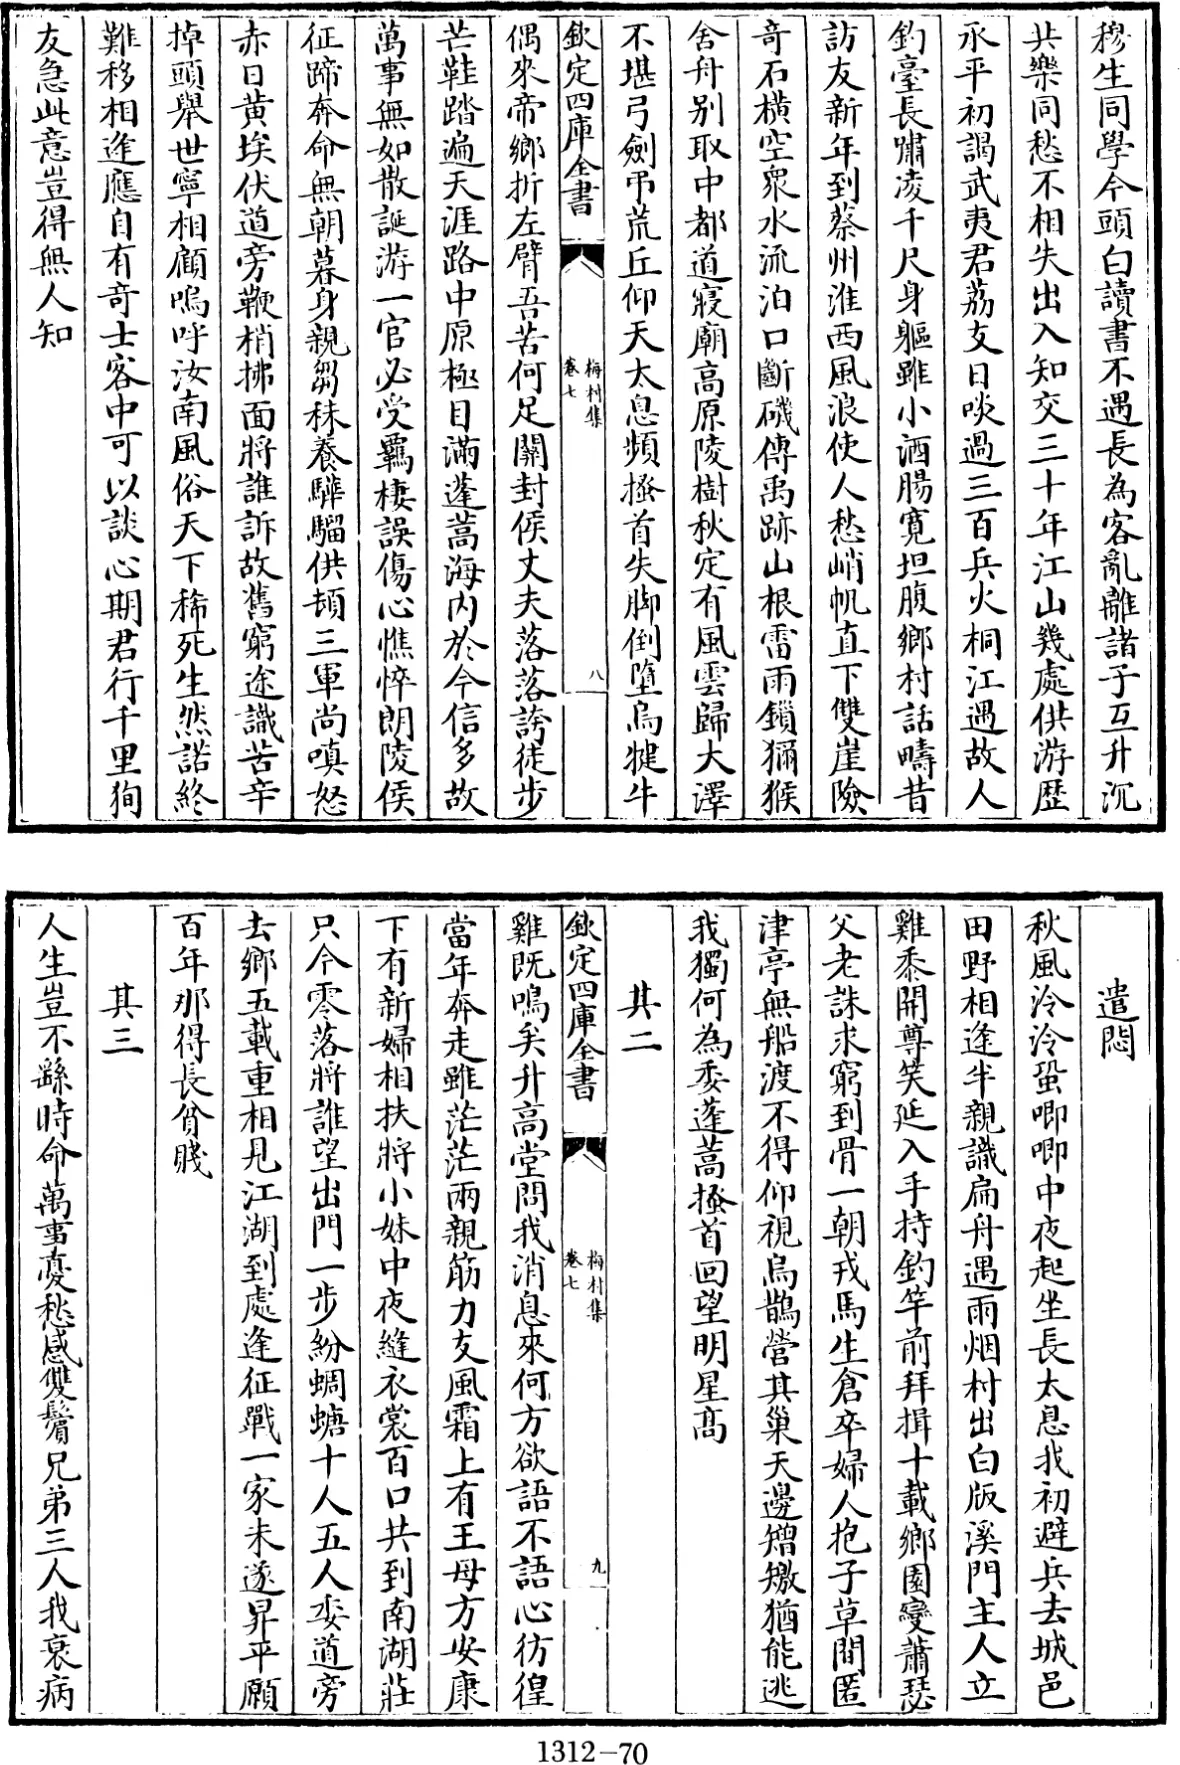 穆生同學今頭白讀書不遇長為客亂離諸子互升沉
共樂同愁不相失出入知交三十年江山幾處供游歷
永平初謁武夷君荔支日啖過三百兵火桐江遇故人
釣臺長嘯凌千尺身軀雖小酒腸寬坦腹鄉村話疇昔
訪友新年到蔡州淮西風浪使人愁峭帆直下雙崖險
奇石橫空衆水流泊口斷磯傳禹跡山根雷雨鎖獼猴
舍舟别取中都道寢廟高原陵樹秋定有風雲歸大澤
不堪弓劍弔荒丘仰天太息頻搔首失脚倒墮烏犍牛
欽定四庫全書
梅村集
卷七
八
偶來帝鄉折左臂吾苦何足關封侯丈夫落落誇徒步
芒鞋踏遍天涯路中原極目滿蓬蒿海内於今信多故
萬事無如散誕游一官必受羈棲誤傷心憔悴朗陵侯
征蹄奔命無朝暮身親芻秣養驊騮供頓三軍尚嗔怒
赤日黄埃伏道旁鞭梢拂面將誰訴故舊窮途識苦辛
掉頭舉世寧相顧嗚呼汝南風俗天下稀死生然諾終
難移相逢應自有奇士客中可以談心期君行千里狥
友急此意豈得無人知
遣悶
秋風泠泠蛩唧唧中夜起坐長太息我初避兵去城邑
田野相逢半親識扁舟遇雨烟村出白版溪門主人立
雞黍開尊笑延入手持釣竿前拜揖十載鄉園變蕭瑟
父老誅求窮到骨一朝戎馬生倉卒婦人抱子草間匿
津亭無船渡不得仰視烏鵲營其巢天邊矰繳猶能逃
我獨何為委蓬蒿搔首回望明星髙
其二
欽定四庫全書
梅村集
卷七
九
雞既鳴矣升高堂問我消息來何方欲語不語心彷徨
當年奔走雖茫茫兩親筋力支風霜上有王母方安康
下有新婦相扶將小妹中夜縫衣裳百口共到南湖莊
只今零落將誰望出門一步紛蜩螗十人五人委道旁
去鄉五載重相見江湖到處逢征戰一家未遂昇平願
百年那得長貧賤
其三
人生豈不繇時命萬事憂愁感雙鬢兄弟三人我衰病
1312-70